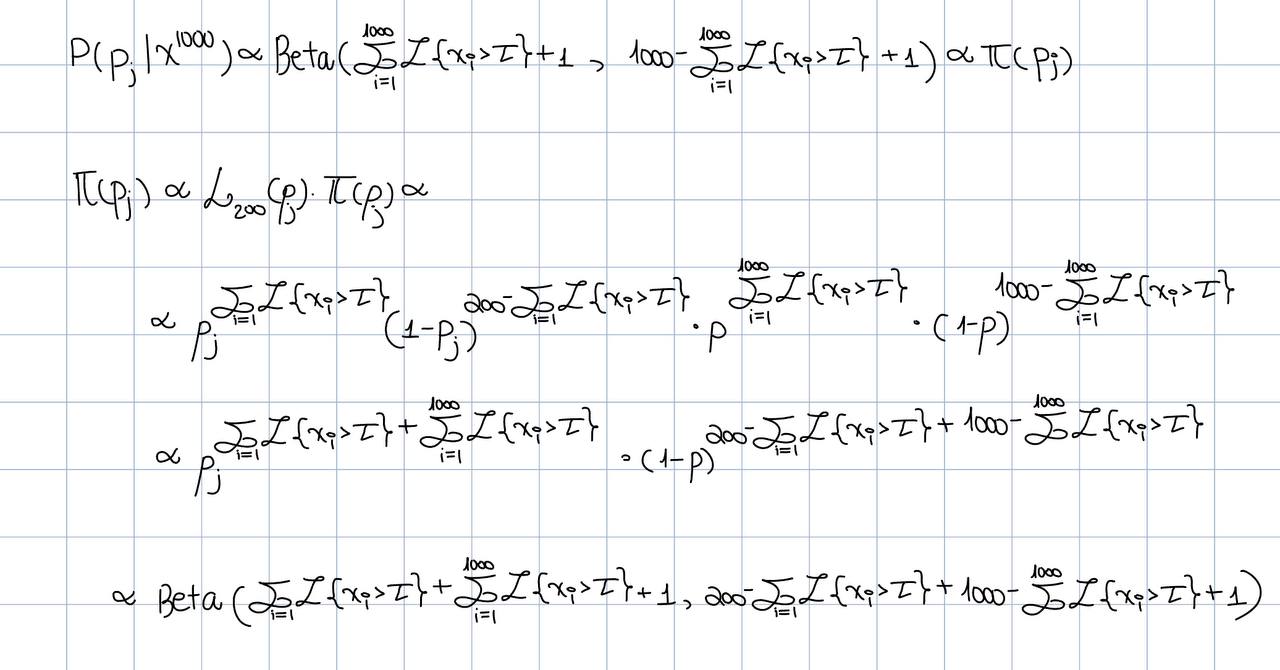 P(p_j|x^1000) ∝ Beta(∑_{i=1}^{1000} I{x_i>τ}+1, 1000-∑_{i=1}^{1000} I{x_i>τ}+1) ∝ π(p_j)
π(p_j) ∝ L_200(p_j)·π(p_j) ∝
∝ p_j^{∑_{i=1} I{x_i>τ}} (1-p_j)^{200-∑_{i=1} I{x_i>τ}} · p^{∑_{i=1}^{1000} I{x_i>τ}} · (1-p)^{1000-∑_{i=1}^{1000} I{x_i>τ}}
∝ p_j^{∑_{i=1} I{x_i>τ}+∑_{i=1}^{1000} I{x_i>τ}} · (1-p)^{200-∑_{i=1} I{x_i>τ}+1000-∑^{1000} I{x_i>τ}}
∝ Beta(∑_{i=1} I{x_i>τ}+∑_{i=1}^{1000} I{x_i>τ}+1, 200-∑_{i=1} I{x_i>τ}+1000-∑_{i=1}^{1000} I{x_i>τ}+1)